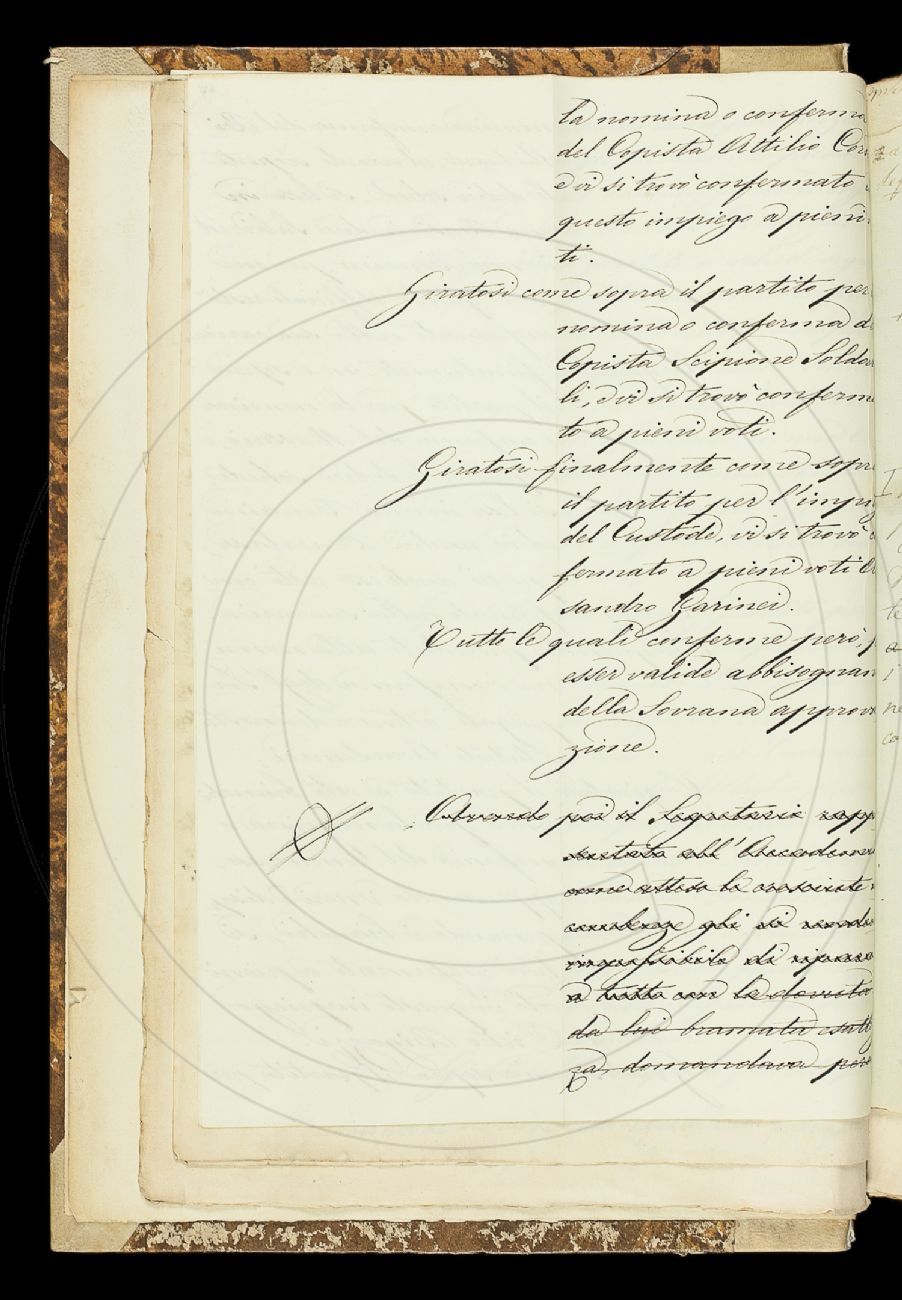 la nomina o conferma
del Copista Attilio Cor
e vi si trovò confermato
questo impiego a pieni
ti.
Giratosi come sopra il partito per
nomina o conferma d
Copista Scipione Soldov
li, e vi si trovò conferma
to a pieni voti.
Giratosi finalmente come sopr
il partito per l'impi
del Custode, vi si trovò
fermato a pieni voti
sandro Garinei.
Tutte le quali conferme però,
esser valide abbisognan
della Sovrana approva
zione.
Avendo poi il Segretario rapp
sentato all'Accademi
come attesa le cresciute
gli si rende
impossibile di
a tutto con la dovuta
da lui bramata esatt
za domandava per